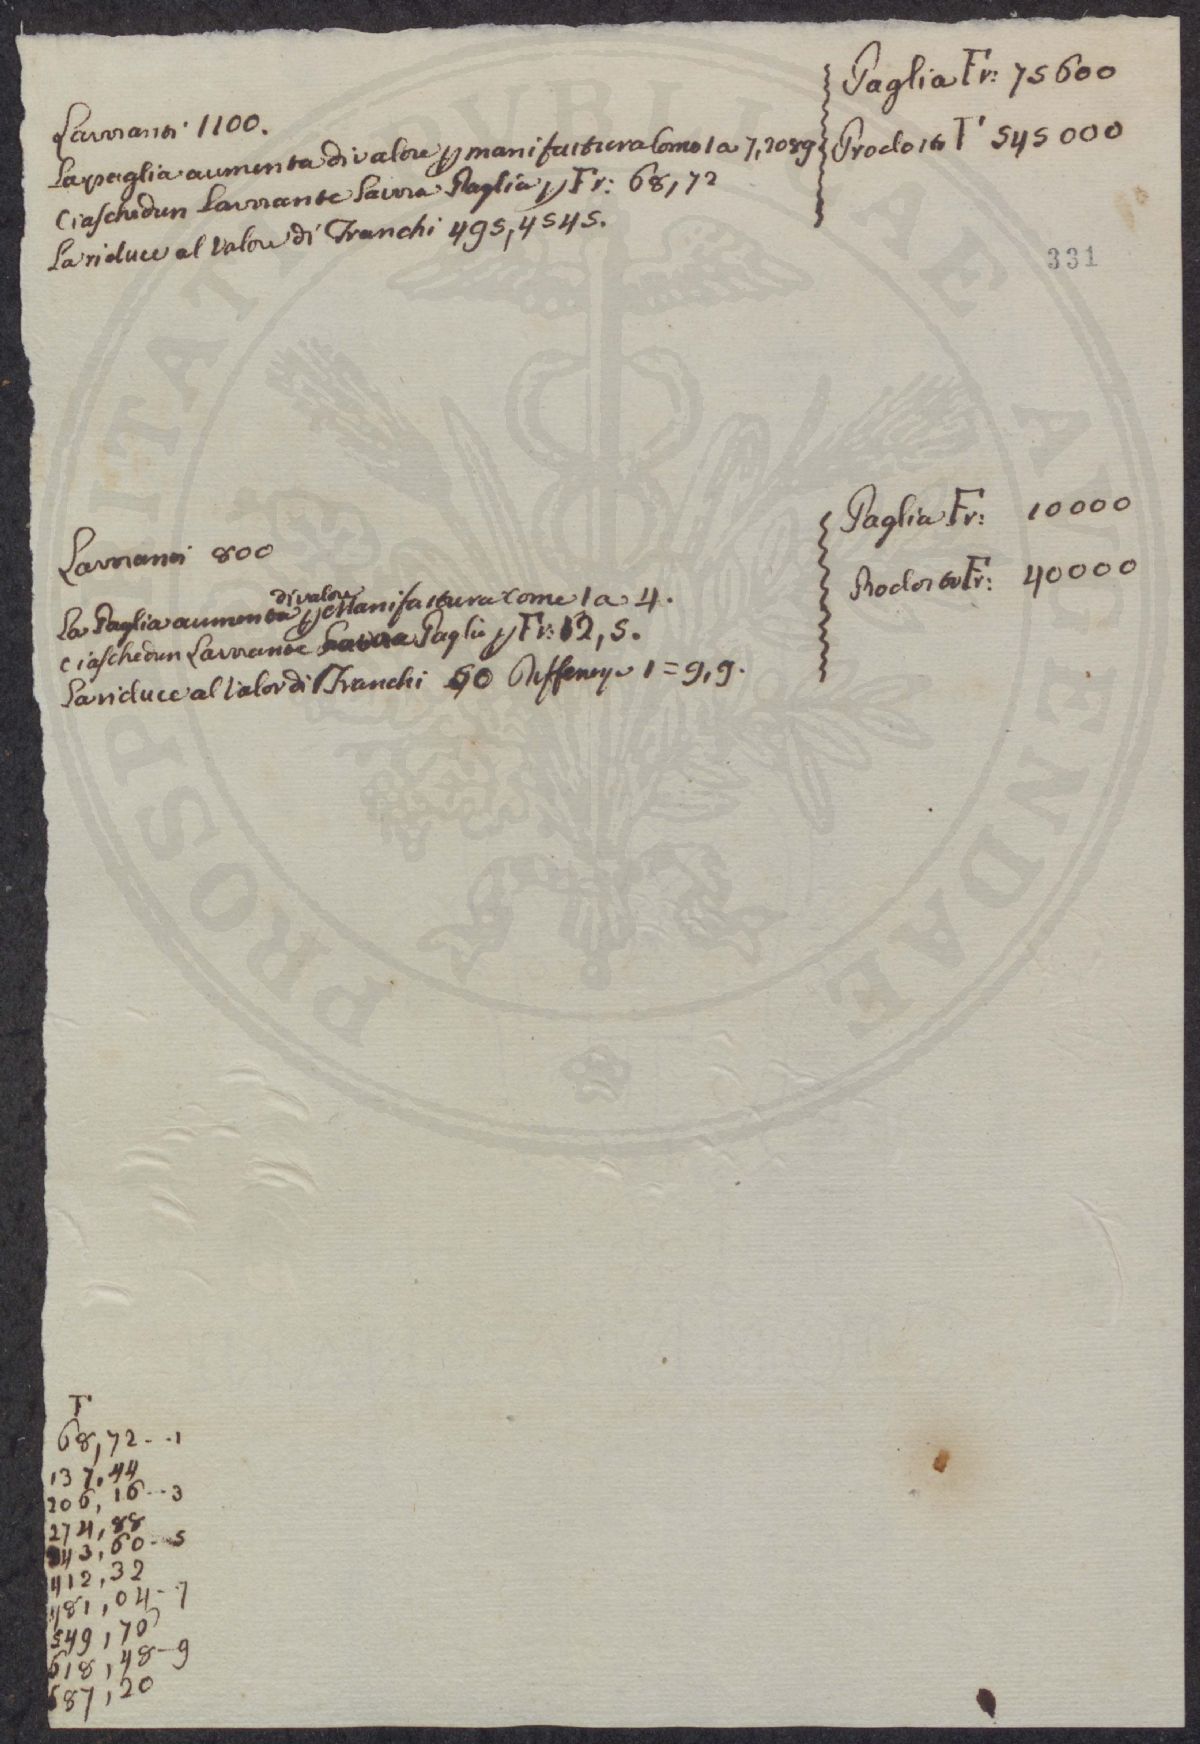 Paglia Fr: 75600
Lavoranti 1100.
Prodotto F 545000
La paglia aumenta di valore p manifattura Como 1 a 7,2089
Ciaschedun Lavorante Lavora Paglia p Fr: 68,72
La riduce al Valore di Franchi 495,4545.
331
Paglia Fr: 10000
Lavoranti 800
Prodotto Fr: 40000
di valore
La Paglia aumenta p Manifattura come 1 a 4.
Ciaschedun Lavorante Lavora Paglia p Fr: 12,5.
La riduce al Valor di Franchi 50 1=9,9.
F
68,72--1
137,44
206,16--3
274,88
343,60--5
412,32
481,04--7
549,76
618,48--9
687,20
PROSPERITATI PUBLICAE AUGENDAE